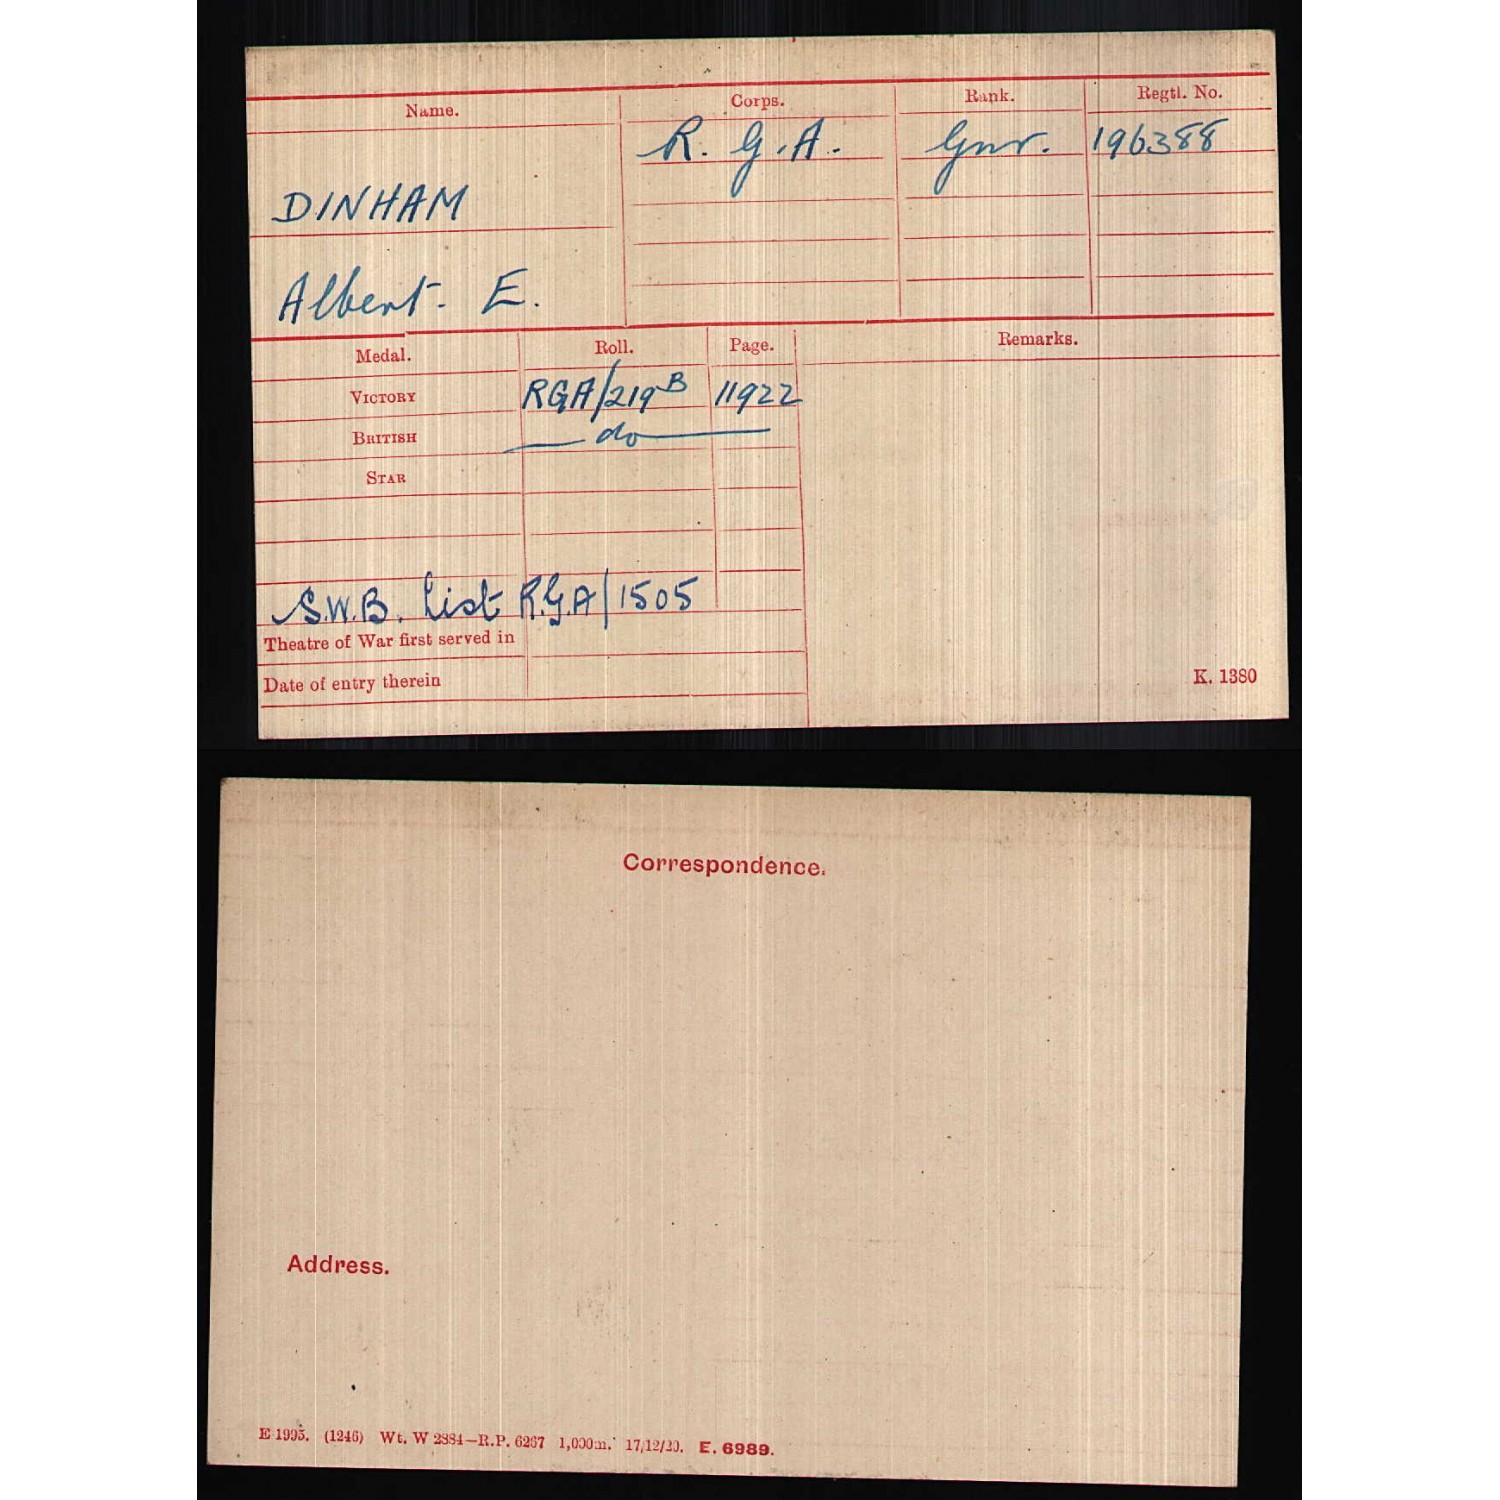 Name. Corps. Rank. Regtl. No.
R. G. A. Gnr. 196388
DINHAM
Albert. E.
Medal. Roll. Page. Remarks.
VICTORY RGA/219B 11922
BRITISH do
STAR
S.W.B. List R.G.A/1505
Theatre of War first served in
Date of entry therein
K. 1380
Correspondence.
Address.
E 1995. (1246) Wt. W 2884—R.P. 6267 1,000m. 17/12/20. E. 6989.